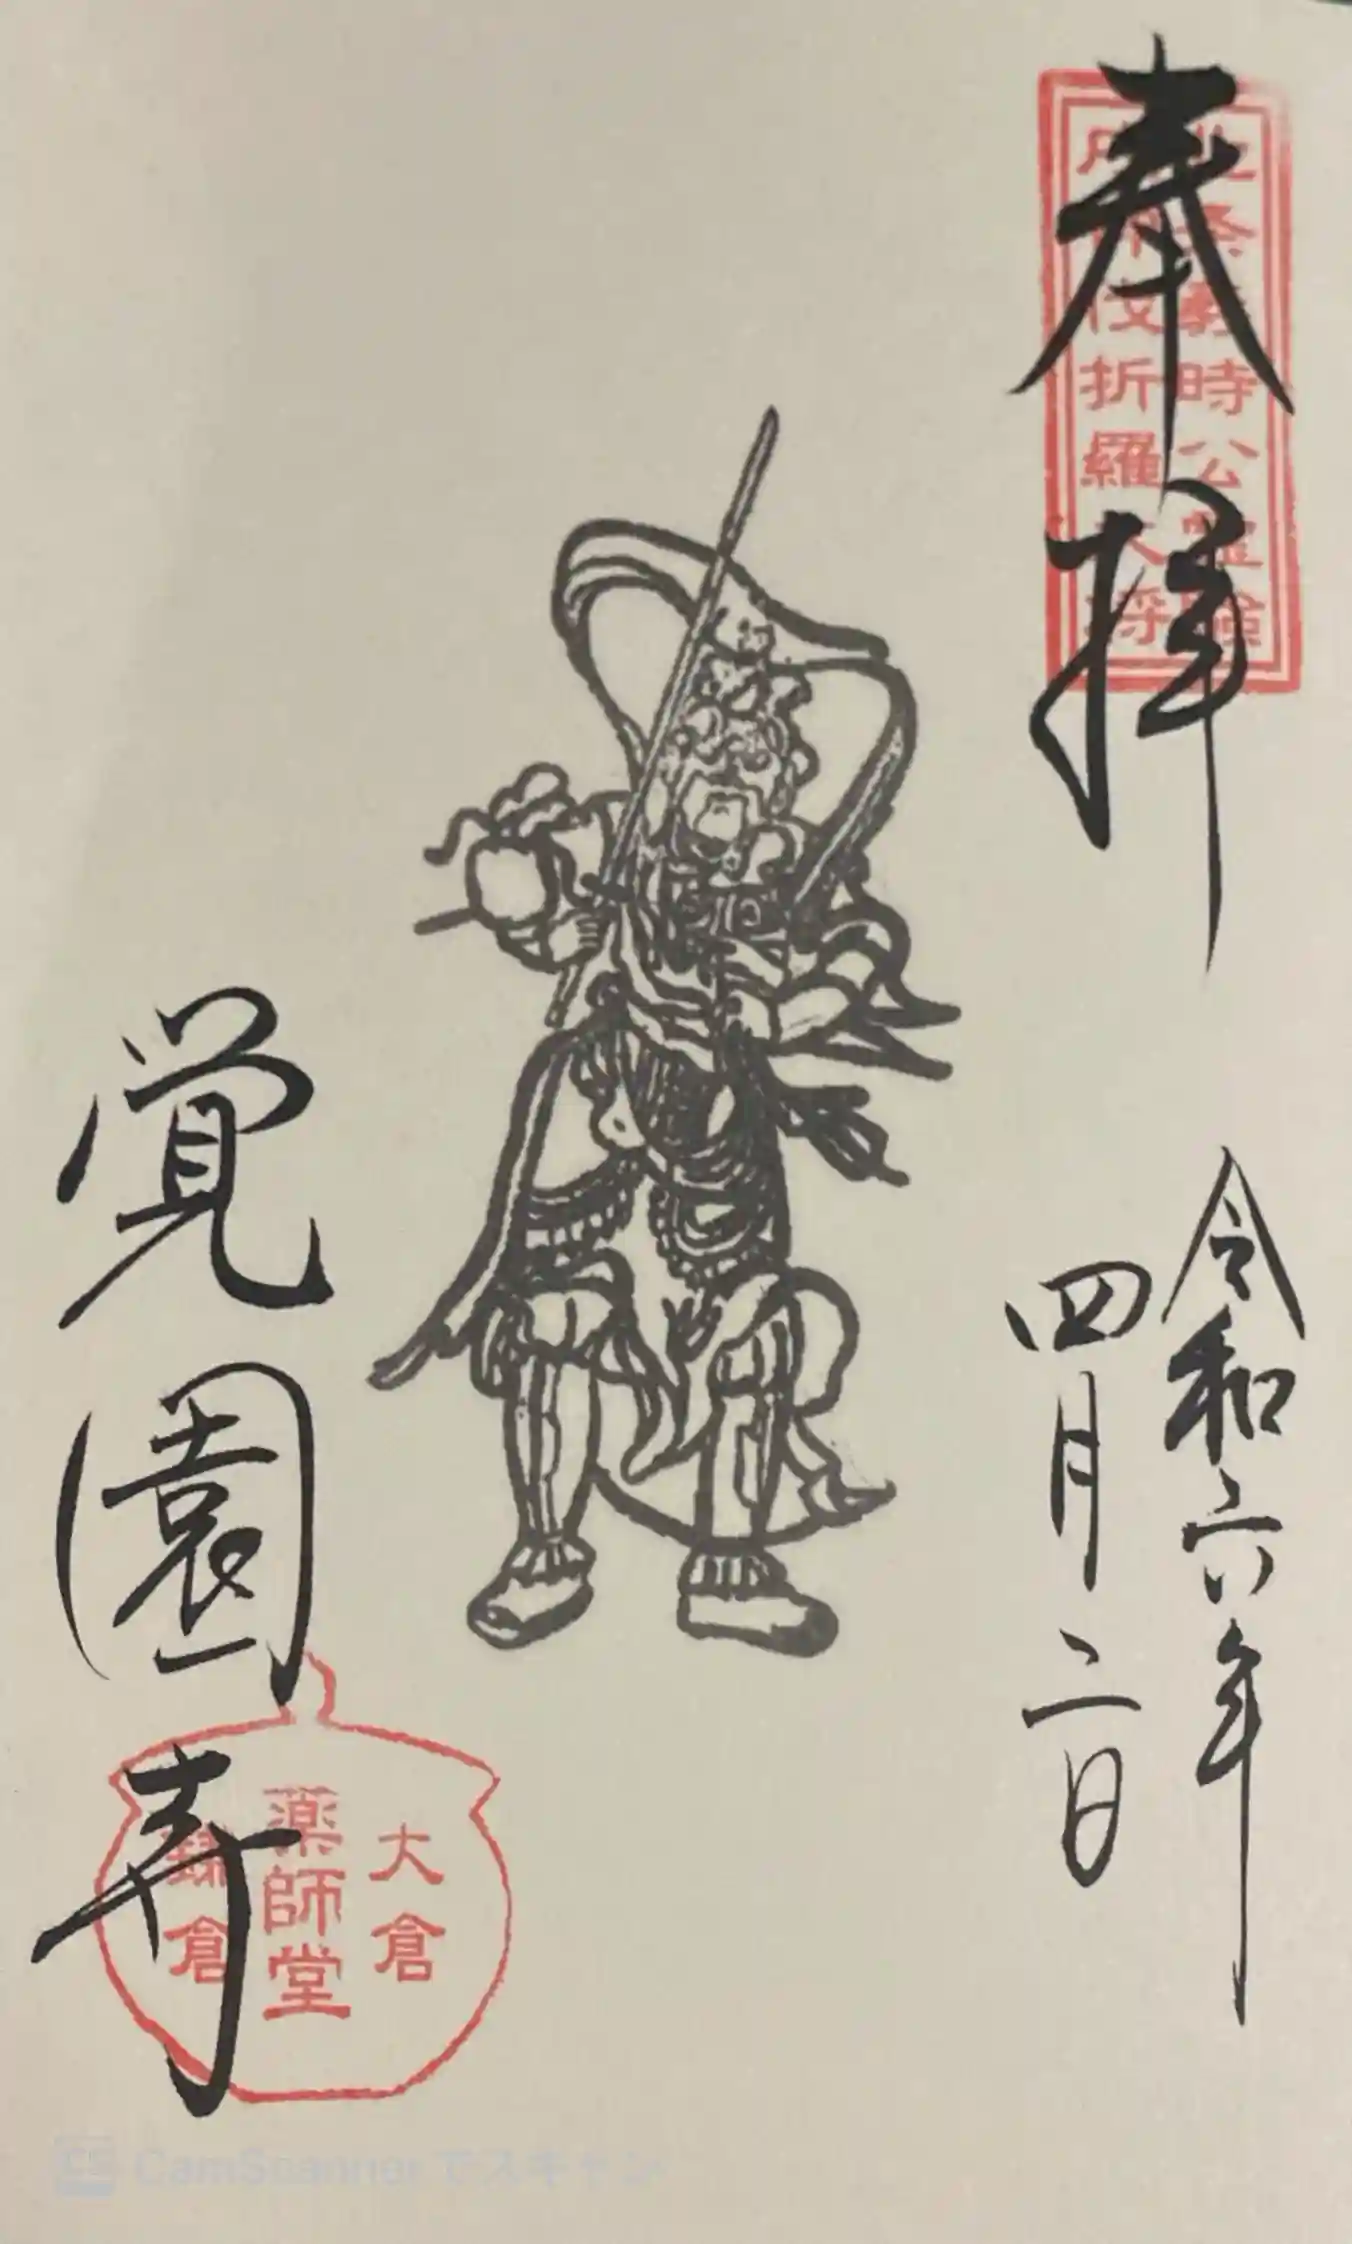 奉拝
北条義時公霊験
戌神伐折羅大将
令和六年
四月二日
覚園寺
大倉
薬師堂
鎌倉
CamScanner でスキャン